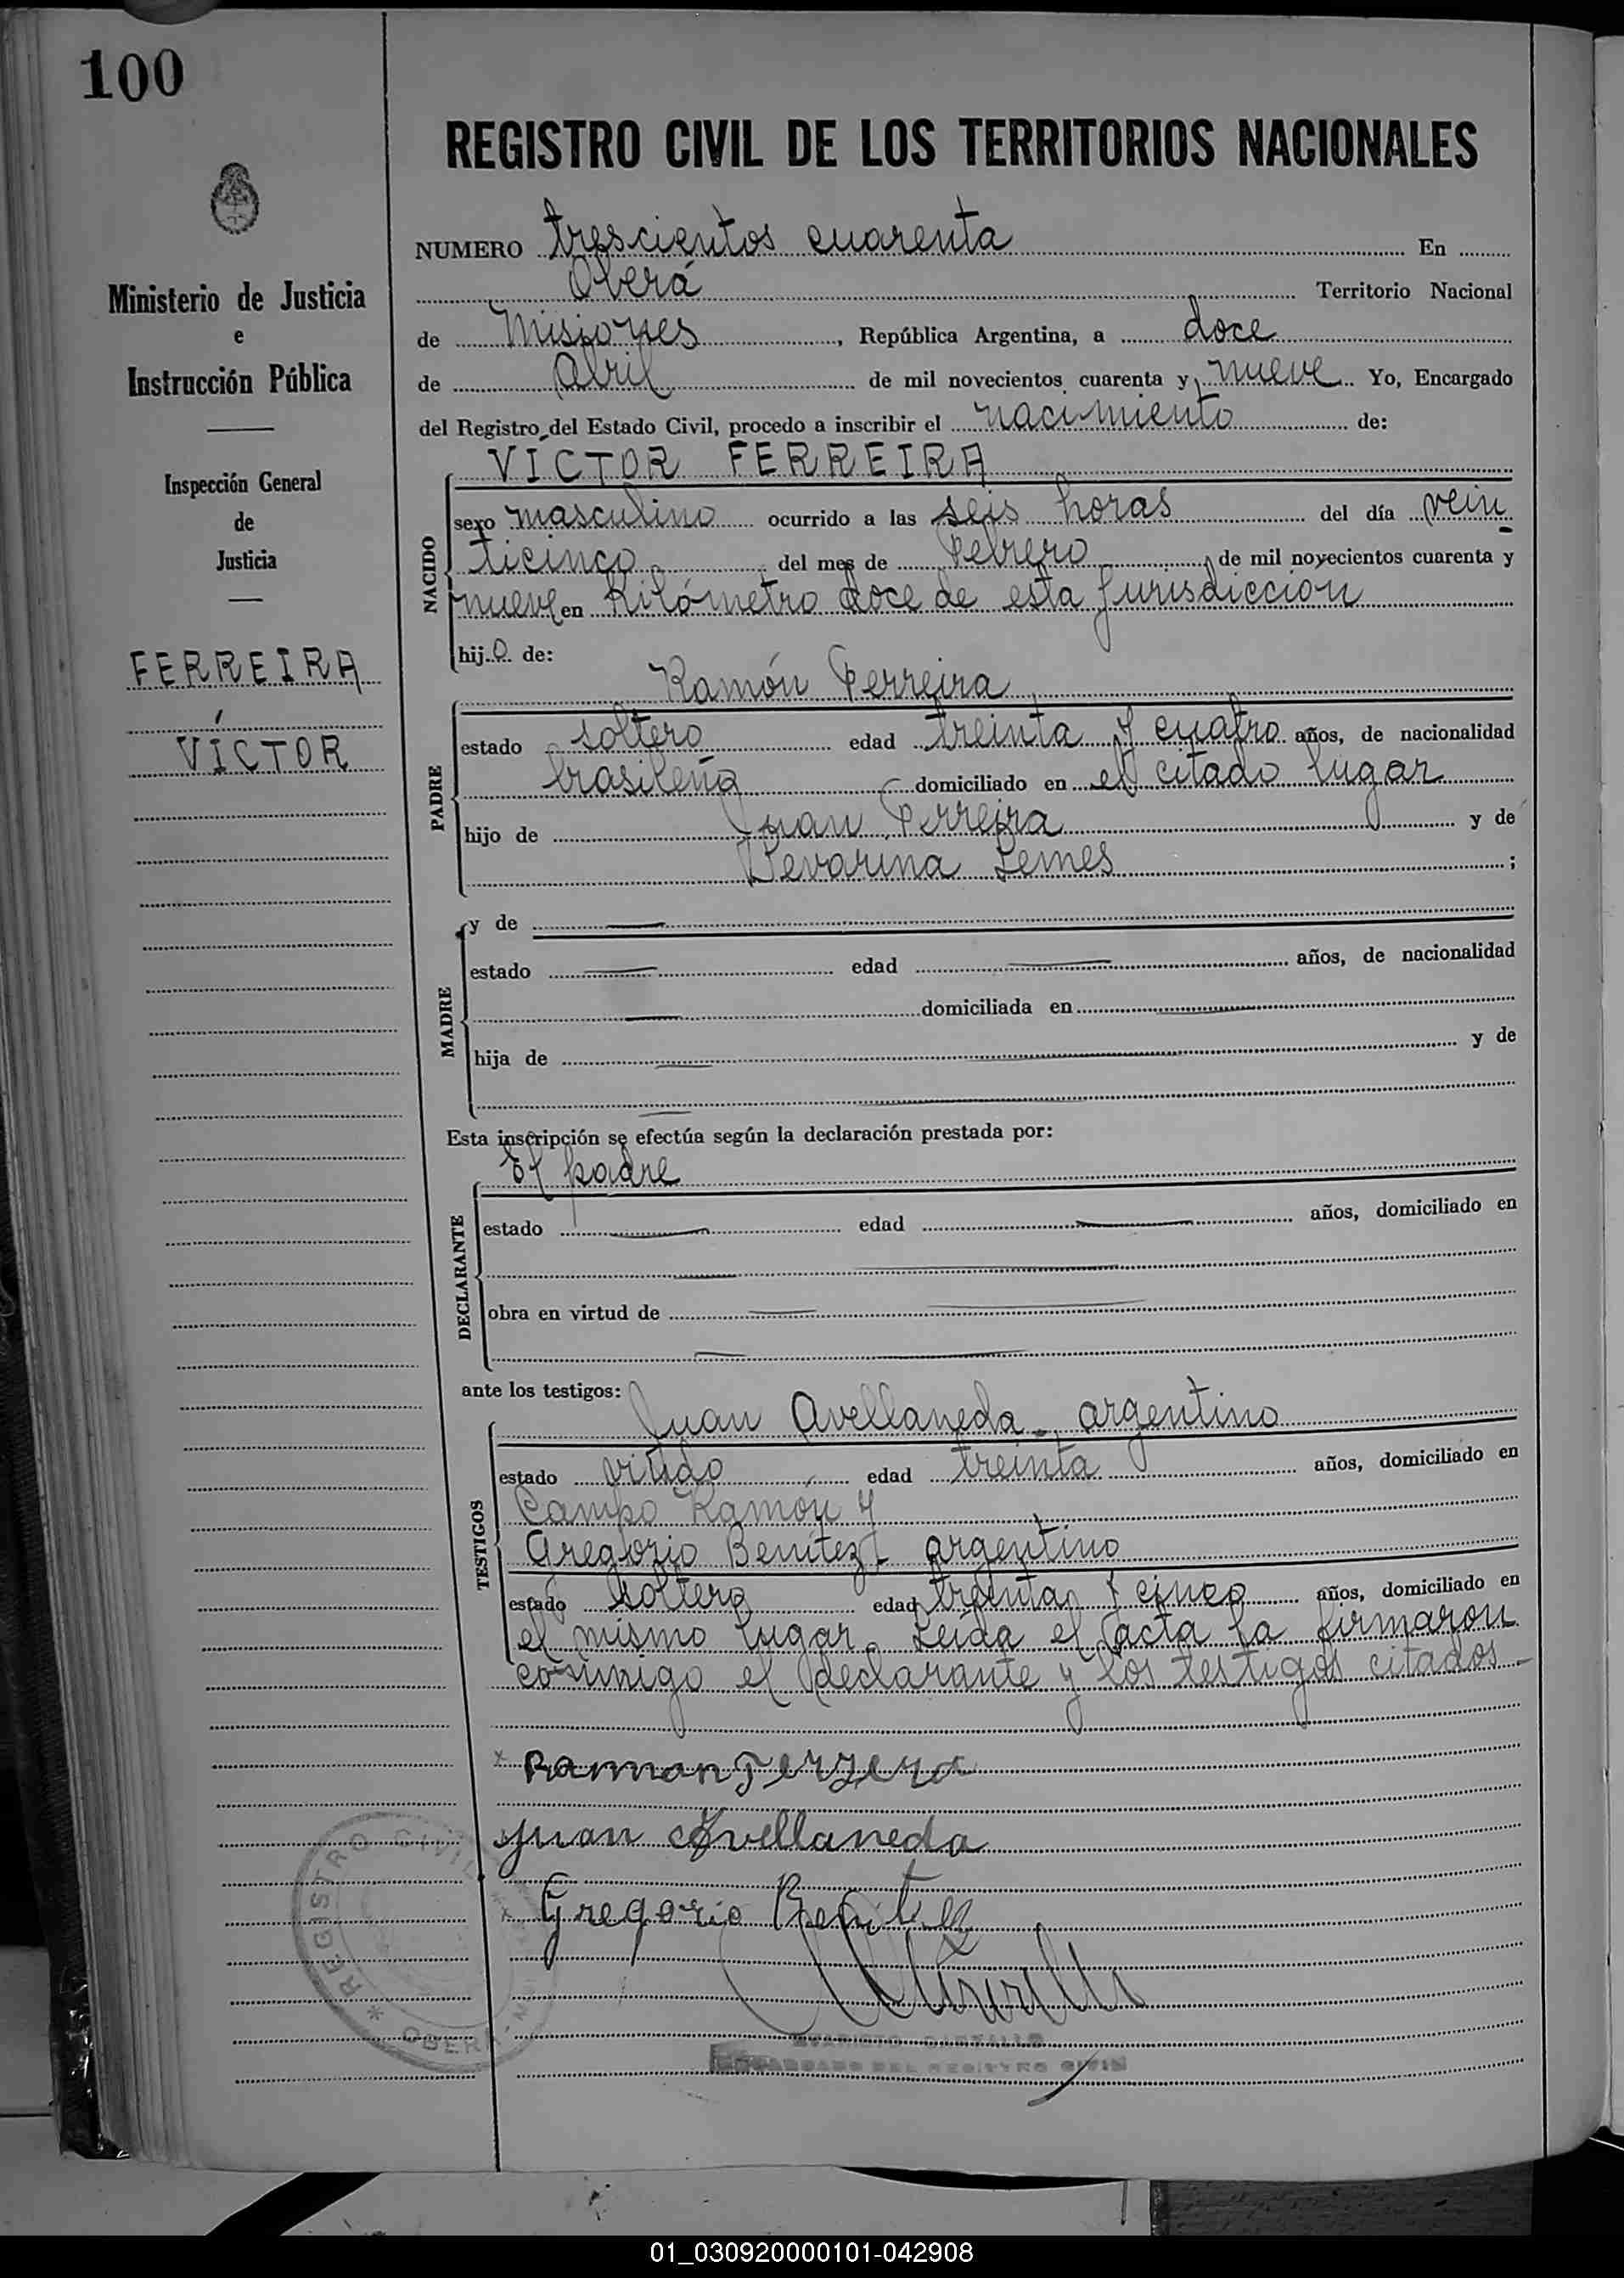 100
REGISTRO CIVIL DE LOS TERRITORIOS NACIONALES
Ministerio de Justicia
e
Instrucción Pública
Inspección General
de
Justicia
FERREIRA
VÍCTOR
NUMERO trescientos cuarenta En
Oberá Territorio Nacional
de Misiones, República Argentina, a doce
de Abril de mil novecientos cuarenta y nueve Yo, Encargado
del Registro del Estado Civil, procedo a inscribir el nacimiento de:
NACIDO
VÍCTOR FERREIRA
sexo masculino ocurrido a las seis horas del día vein
ticinco del mes de Febrero de mil novecientos cuarenta y
nueve en Kilómetro doce de esta jurisdicción
hijo de:
PADRE
Ramón Ferreira
estado soltero edad treinta y cuatro años, de nacionalidad
brasileña domiciliado en el citado lugar
hijo de Juan Ferreira y de
Lemes ;
MADRE
y de
estado edad años, de nacionalidad
domiciliada en
hija de y de
Esta inscripción se efectúa según la declaración prestada por:
DECLARANTE
El padre
estado edad años, domiciliado en
obra en virtud de
ante los testigos:
TESTIGOS
Juan Avellaneda - argentino
estado viudo edad treinta años, domiciliado en
Campo Ramón y
Gregorio Benítez - argentino
estado soltero edad treinta y cinco años, domiciliado en
el mismo lugar. Leída el acta la firmaron
conmigo el declarante y los testigos citados -
x Ramman Ferzera
Juan Avellaneda
x Gregorio Benitez
* REGISTRO CIVIL * OBERÁ
ENCARGADO DEL REGISTRO CIVIL
01_030920000101-042908